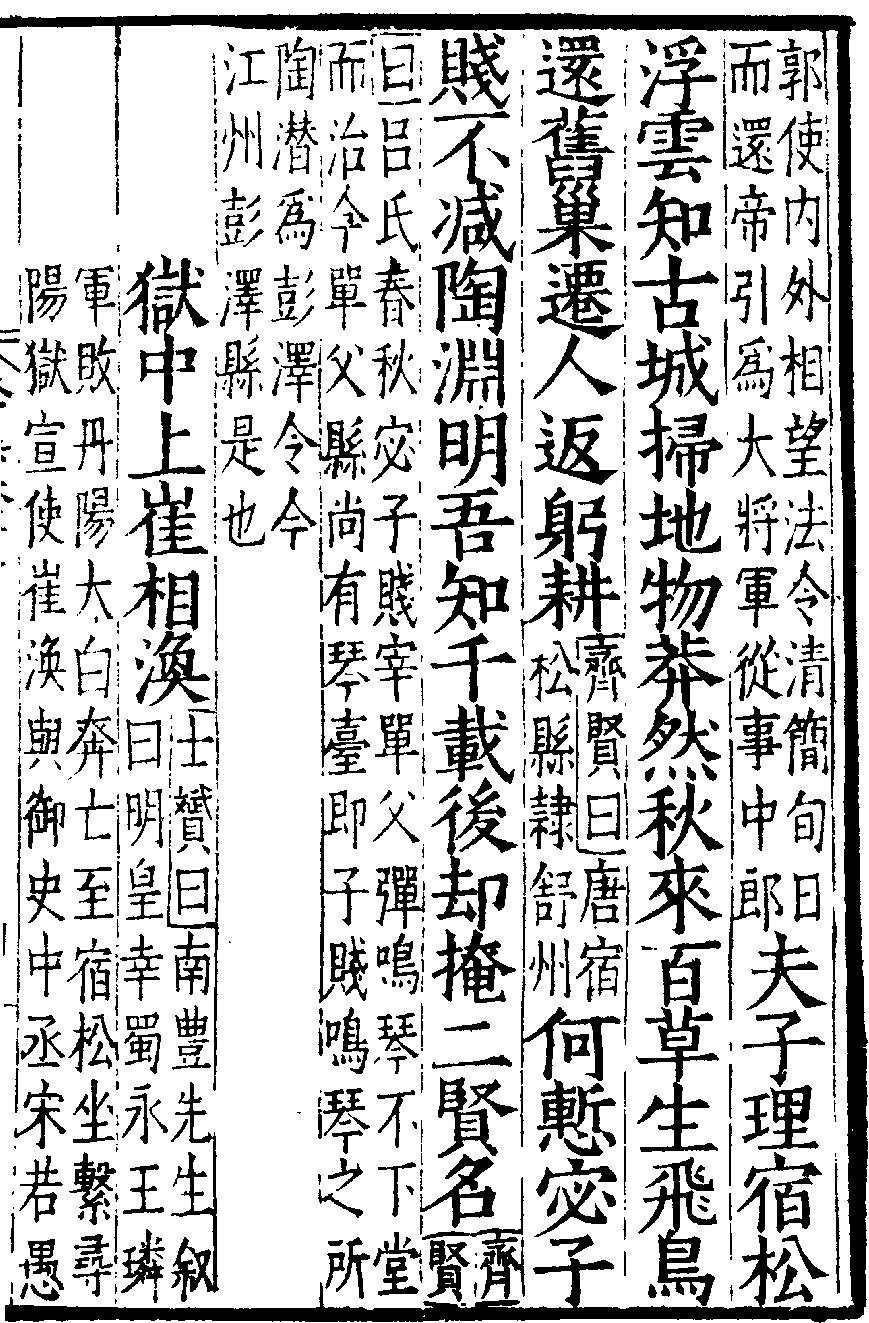 郭使内外相望法令清簡旬日
而還帝引爲大將軍從事中郎
夫子理宿松
浮雲知古城掃地物莽然秋來百草生飛鳥
還舊巢遷人返躬耕
齊賢曰唐宿
松縣隷舒州
何慙宓子
賤不减陶淵明吾知千載後却掩二賢名
齊
賢
曰吕氏春秋宓子賤宰單父彈鳴琴不下堂
而治今單父縣尚有琴臺即子賤鳴琴之所
陶潛爲彭澤令今
江州彭澤縣是也
獄中上崔相渙
士贇曰南豊先生叙
曰明皇幸蜀永王璘
軍敗丹陽太白奔亡至宿松坐繫尋
陽獄宣使崔渙與御史中丞宋若愚